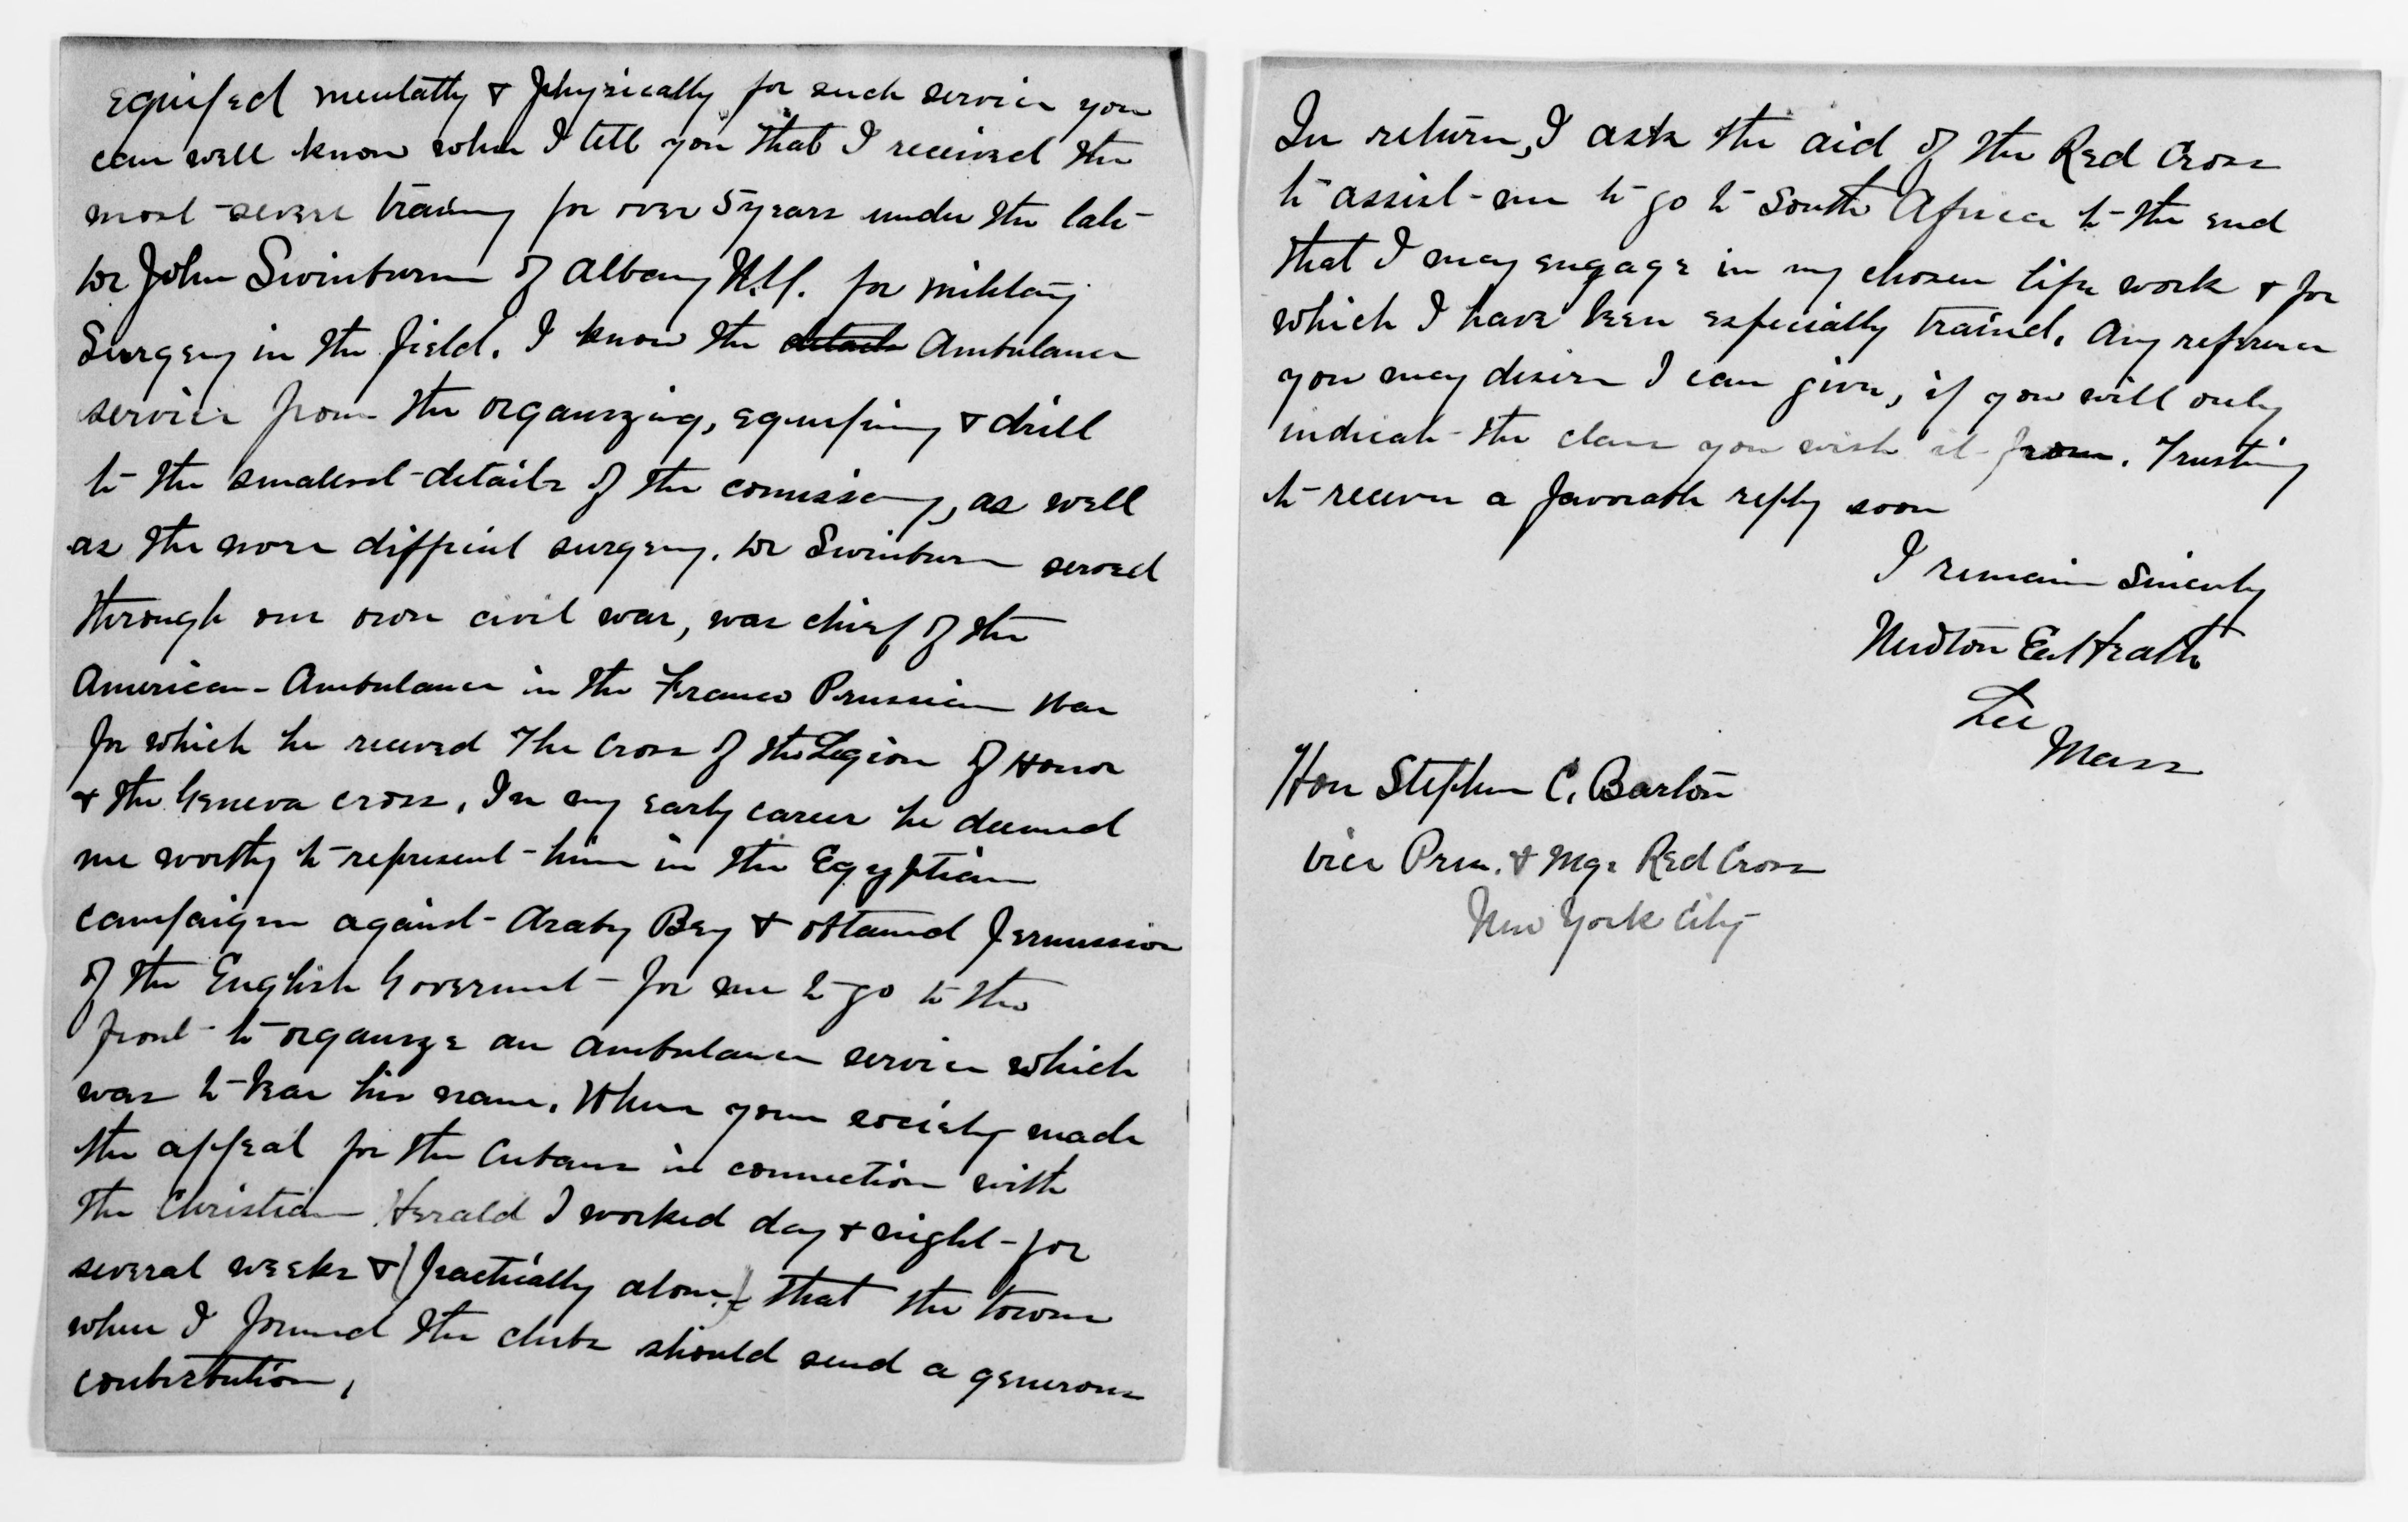 equiped mentally & physically for such service you
can well know when I tell you that I received the
most severe training for over 5 years under the late
Dr John Swinburn of Albany N.Y. for military
Surgery in the field. I know the details Ambulance
service from the organizing, equiping & drill
to the smallest details of the comissary, as well
as the more difficult surgery. Dr Swinburn served
through our own civil war, was chief of the
American Ambulance in the Franco Prussian War
for which he received The Cross of the Legion of Honor
& the Geneva cross. In my early career he deemed
me worthy to represent him in the Egyptian
campaign against Araby Bey & obtained permission
of the English Goverment for me to go to the
front to organize an ambulance service which
was to bear his name. When your society made
the appeal for the Cubans in connection with
the Christian Herald I worked day & night for
several weeks & (practically alone) that the towns
where I formed the clubs should send a generous
contribution.
In return, I ask the aid of the Red Cross
to assist me to go to South Africa to the end
that I may engage in my chosen life work & for
which I have been especially trained. Any reference
you may desire I can give, if you will only
indicate the class you wish it from. Trusting
to receive a favorable reply soon
I remain Sincerly
Newton Earl Heath
Lee
Mass
Hon Stephen C. Barton
Vice Pres. & Mgr Red Cross
New York City